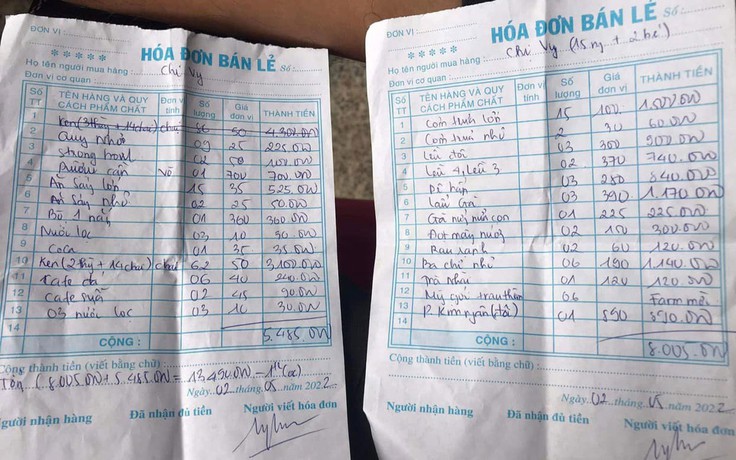 ĐƠN VỊ :
HÓA ĐƠN BÁN LẺ Số:
Họ tên người mua hàng : Chị Vy
Đơn vị cơ quan :
Số TT TÊN HÀNG VÀ QUY CÁCH PHẨM CHẤT Đơn vị tính Số lượng Giá đơn vị THÀNH TIỀN
1 Ken (3 thùng + 14 chai) chai 86 50 4.300.000
2 Quy nhỏ 09 25 225.000
3 Strong bowl 02 50 100.000
4 01 700 700.000
5 Ăn sáng lớn 15 35 525.000
6 Ăn sáng nhỏ 02 25 50.000
7 Bò 1 nắng 01 360 360.000
8 Nước lọc 03 10 30.000
9 Coca 01 35 35.000
10 Ken (2 thùng + 14 chai) chai 62 50 3.100.000
11 Cafe đá 06 40 240.000
12 Cafe sữa 02 45 90.000
13 03 nước lọc 03 10 30.000
14
CỘNG : 5.485.000
Cộng thành tiền (viết bằng chữ)
Tổng (8.005.000 + 5.485.000 = 13.490.000 - 1tr (cọc)
Ngày 02 tháng 05 năm 2022
Người nhận hàng Đã nhận đủ tiền Người viết hóa đơn
ĐƠN VỊ :
HÓA ĐƠN BÁN LẺ Số :
Họ tên người mua hàng : Chị Vy (15 ng + 2 bé)
Đơn vị cơ quan :
Số TT TÊN HÀNG VÀ QUY CÁCH PHẨM CHẤT Đơn vị tính Số lượng Giá đơn vị THÀNH TIỀN
1 Cơm trưa lớn 15 100 1.500.000
2 Cơm trưa nhỏ 2 30 60.000
3 Lều đôi 03 300 900.000
4 Lều 4, lều 3 02 370 740.000
5 Dê hấp 03 280 840.000
6 Lẩu gà 03 390 1.170.000
7 Gỏi 01 225 225.000
8 nướng 02 150 300.000
9 Rau xanh 02 60 120.000
10 Ba chỉ nhỏ 06 190 1.140.000
11 Trà 01 120 120.000
12 Mỳ gói + 06 Farm mời
13 P. Kim ngân 01 890 890.000
14
CỘNG : 8.005.000
Cộng thành tiền (viết bằng chữ) :
Ngày 02 tháng 05 năm 2022
Người nhận hàng Đã nhận đủ tiền Người viết hóa đơn